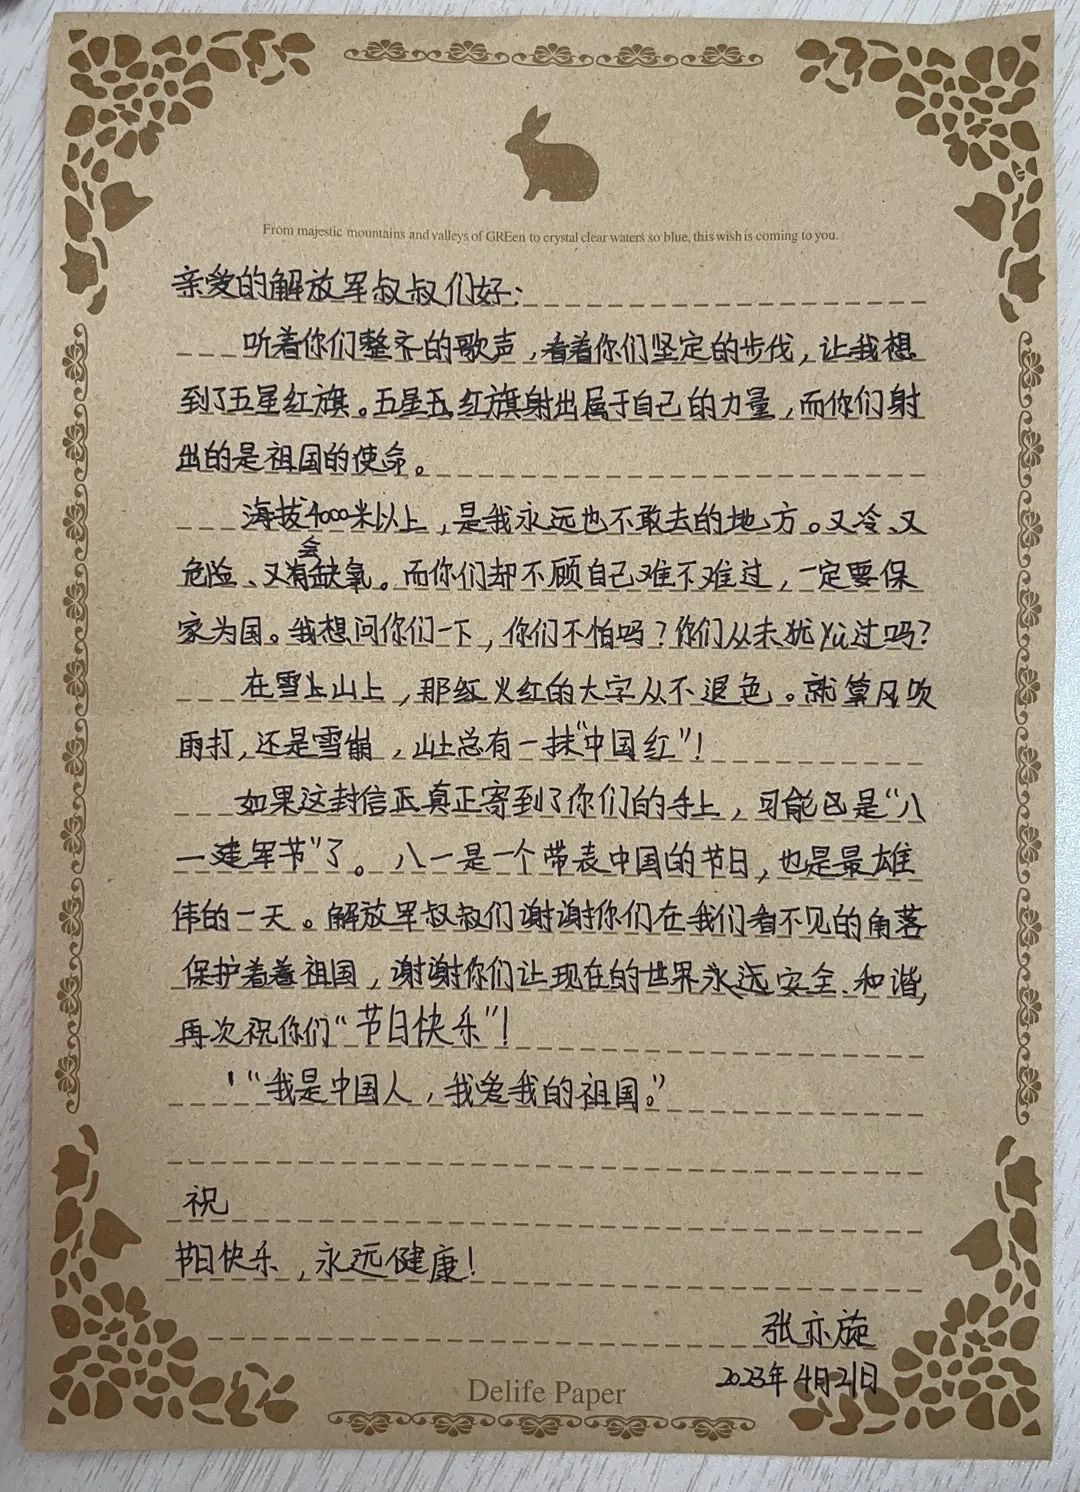 From majestic mountains and valleys of GREen to crystal clear waters so blue, this wish is coming to you.
亲爱的解放军叔叔们好：
听着你们整齐的歌声，看着你们坚定的步伐，让我想
到了五星红旗。五星五红旗射出属于自己的力量，而你们射
出的是祖国的使命。
海拔4000米以上，是我永远也不敢去的地方。又冷、又
危险、又会缺氧。而你们却不顾自己难不难过，一定要保
家为国。我想问你们一下，你们不怕吗？你们从未犹yù过吗？
在雪上山上，那红火红的大字从不退色。就算风吹
雨打，还是雪崩，山上总有一抹“中国红”！
如果这封信正真正寄到了你们的手上，可能已是“八
一建军节”了。八一是一个带表中国的节日，也是最雄
伟的一天。解放军叔叔们谢谢你们在我们看不见的角落
保护着着祖国，谢谢你们让现在的世界永远安全、和谐，
再次祝你们“节日快乐”！
“我是中国人，我爱我的祖国。”
祝
节日快乐，永远健康！
张亦旋
2023年4月21日
Delife Paper